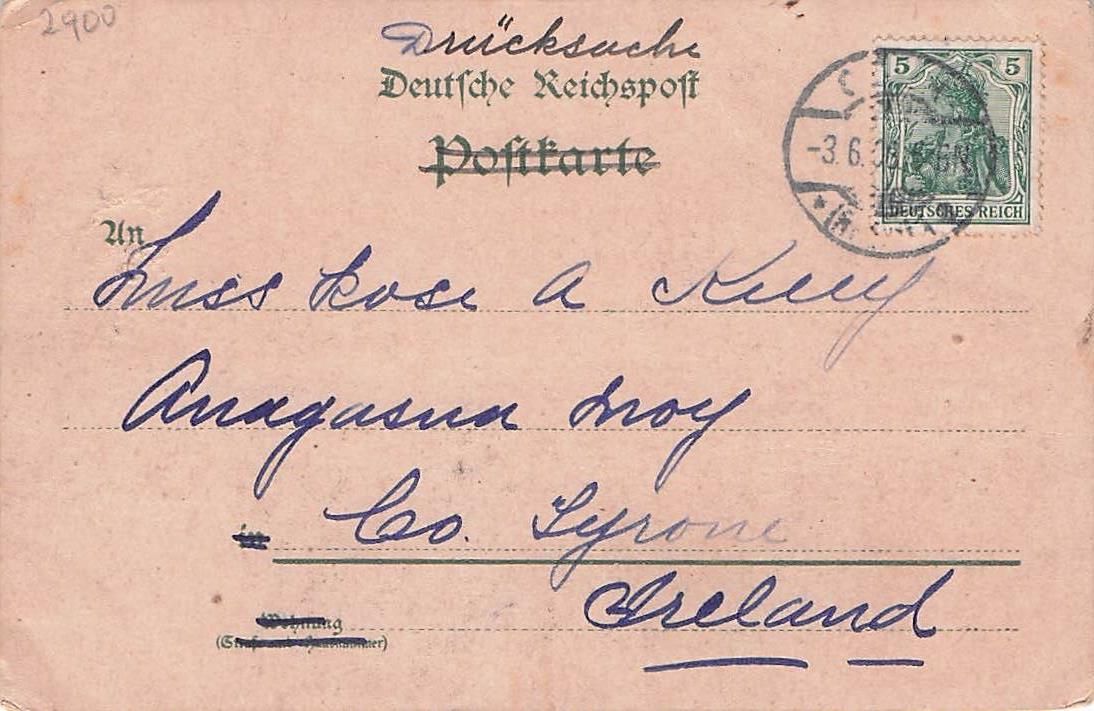 2900
Drücksache
Deutsche Reichspost
Postkarte
5 5
DEUTSCHES REICH
-3.6.
An
Miss Rose A Kelly
Anagasna Moy
in
Co. Tyrone
Ireland
Wohnung
(Straße und Hausnummer)